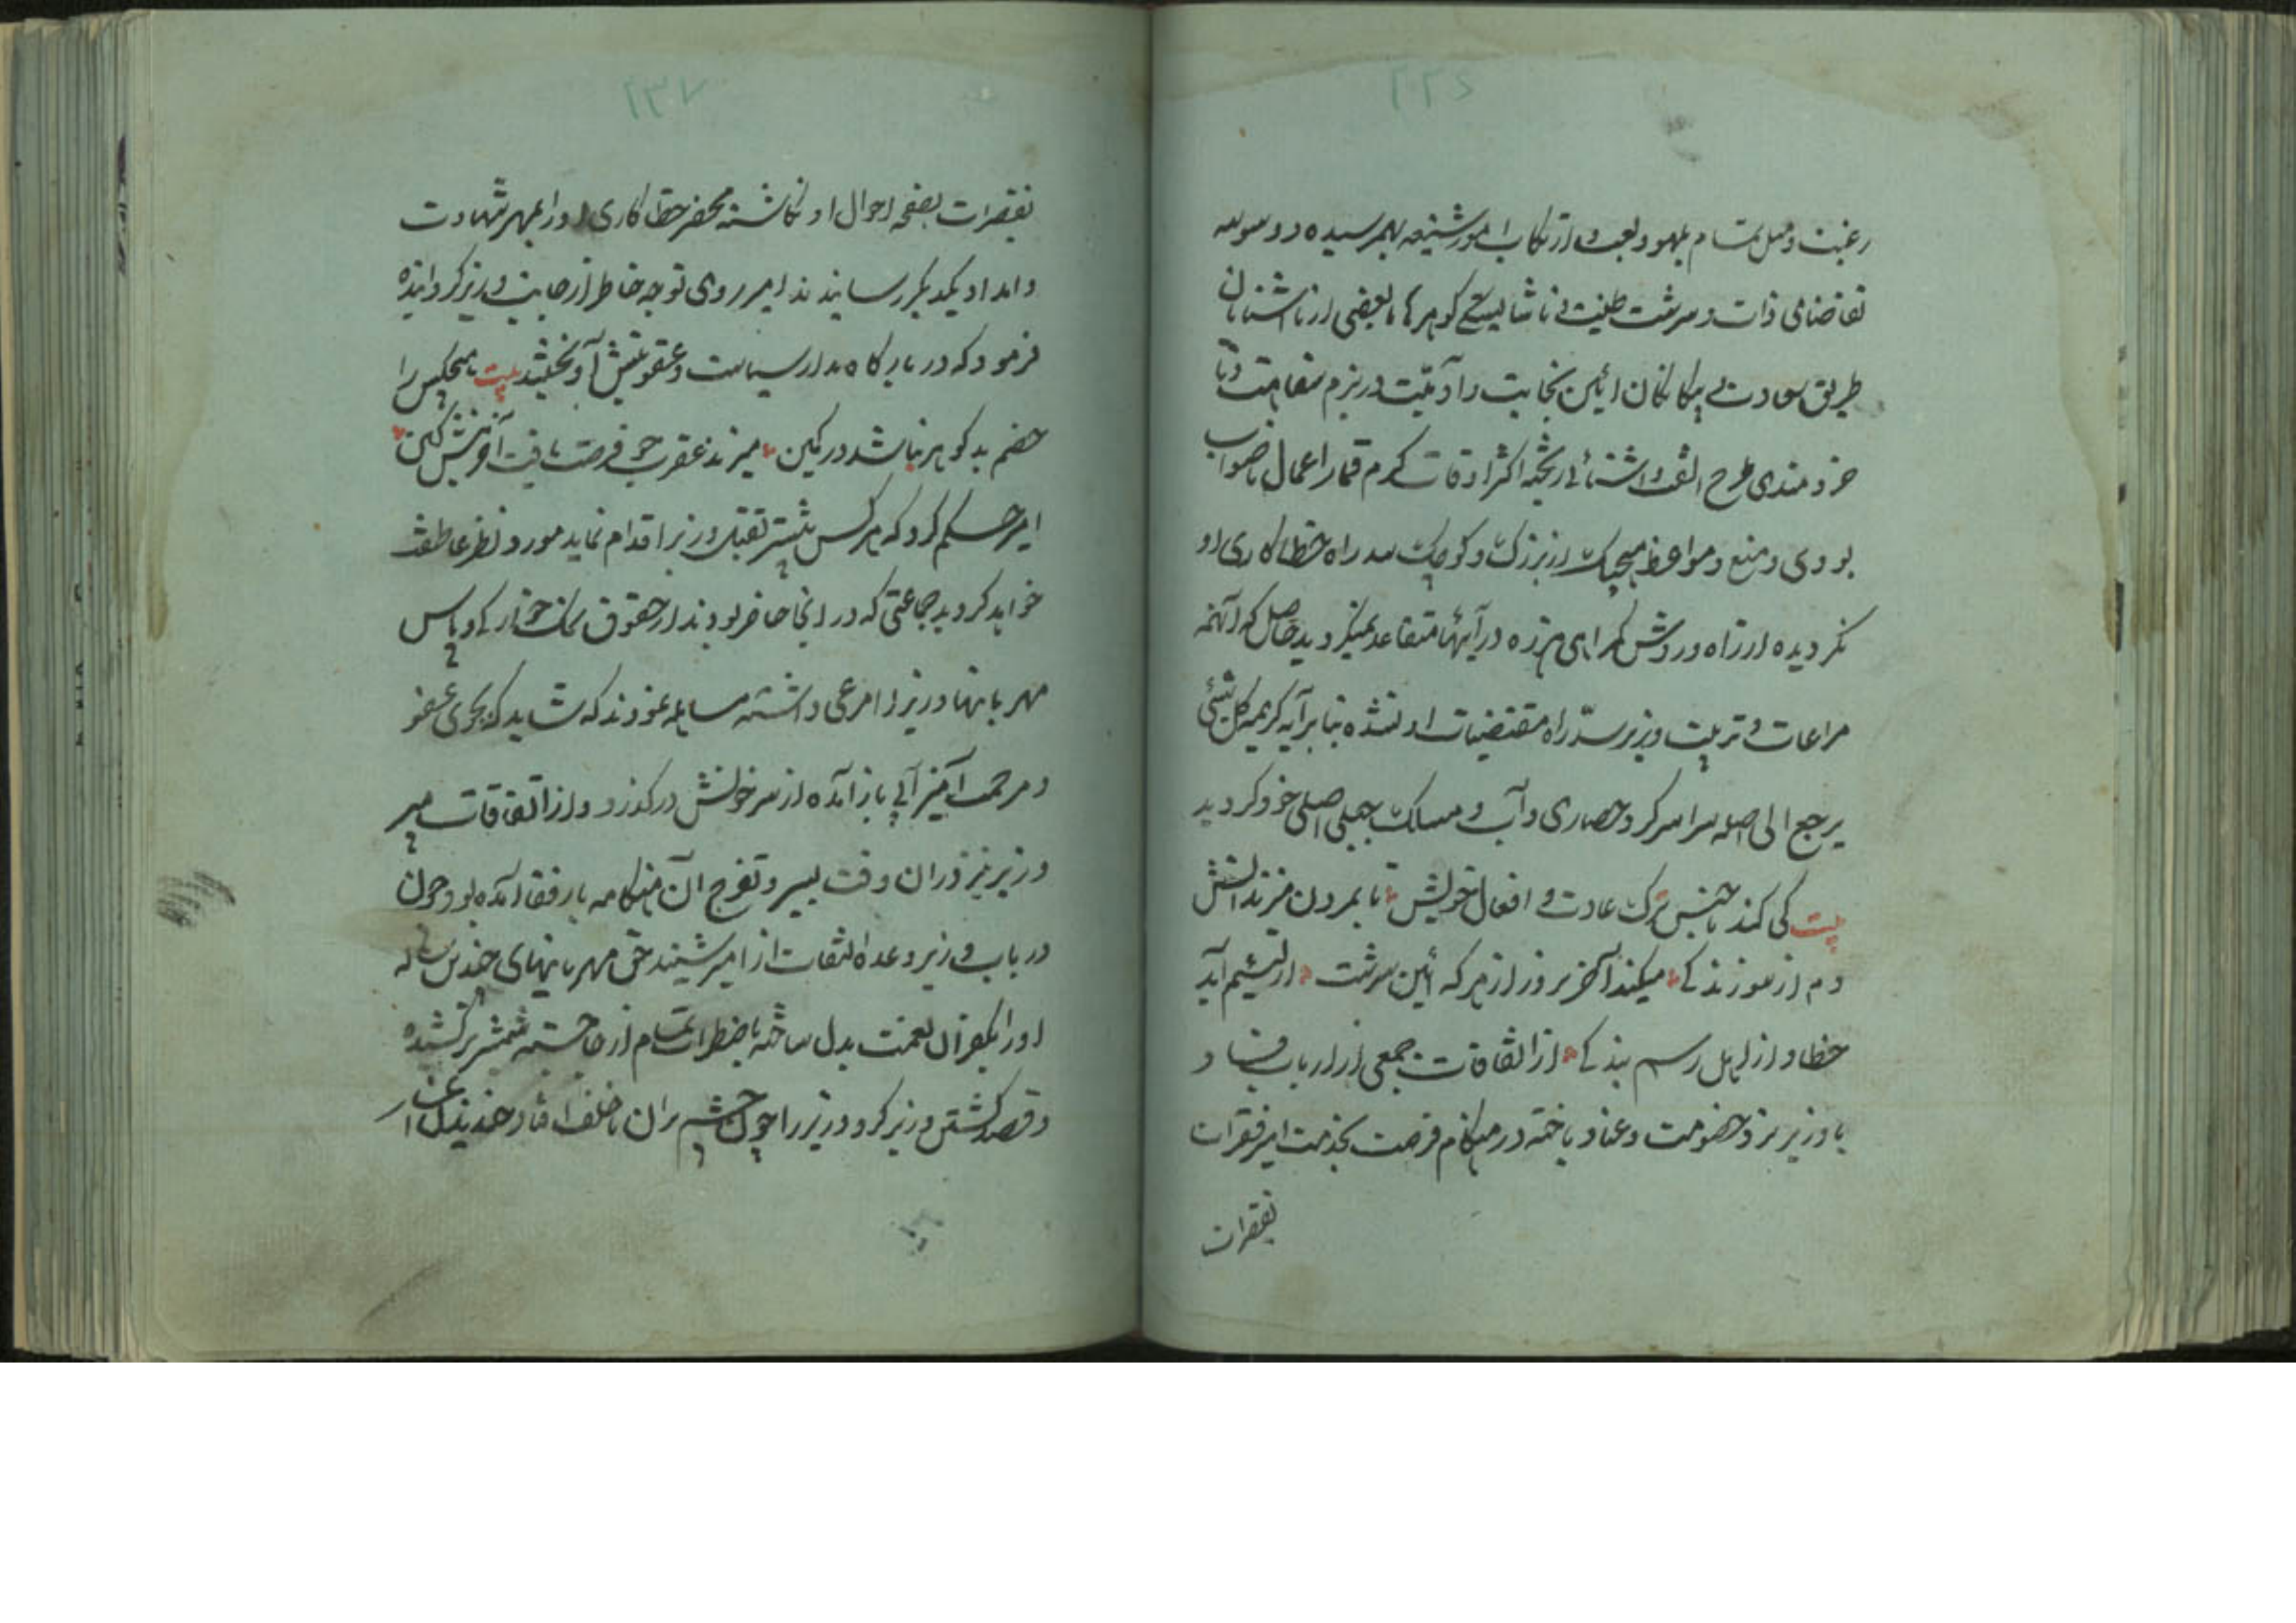 ۲۳۶
رغبت و میل تمام بلهو و لعب و ارتکاب امور شنیعه بهم رسیده و وسوسه
تقاضای ذات و سرشت طینت ناشایسته گوهر با بعضی از ناآشنایان
طریق سعادت و بیگانگان آئین نجابت و آدمیت در بزم سفاهت و نا
خردمندی طرح الفت و آشنائی ریخته اکثر اوقات سرکرم قمار و اعمال ناصواب
بودی و منع و مواعظ هیچیک از بزرگ و کوچک سد راه خطاکاری او
نکردیده از راه و روش کمراهی هرزه درآیها متقاعد نمیکردید حاصل که آنهمه
مراعات و تربیت وزیر سدّ راه مقتضیات او نشده بنابر آیه کریمه کل شیئی
یرجع الی اصله سراسر کرد حصاری و آب و مسالک جبلی اصلی خود کردید
بیت کی کند ناجنس ترک عادت و افعال خویش تا بمردن میزند آتش
دم از سوزندکی میکند آخر بروز از هر که آئین سرشت از لئیم آید
خطا و از اهل رسم بندکی از اتفاقات جمعی از ارباب فساد
با وزیر نرد خصومت و عناد باخته در هنکام فرصت بخدمت امیر فقرات
تقصیرات
۲۳۷
تقصیرات بصفحه احوال او نکاشته محضر خطاکاری او را بمهر شهادت
و امداد یکدیکر رسانیدند امیر روی توجه خاطر از جانب وزیر کردانیده
فرمود که در بارکاه مدار سیاست و عقوبتش آویختند بیت هیچکس را
خصم بدکوهر نباشد در کمین میزند عقرب چو فرصت یافت آخر نیش کین
امیر حکم کرد که هر کس بیشتر بقتل وزیر اقدام نماید مورد نظر عاطفت
خواهد کردید جماعتی که در آنجا حاضر بودند از حقوق نمک خوارکی و پاس
مهربانیها وزیر را مرعی داشته مساهله نمودند که شاید که بجوی عفو
و مرحمت آمیز آبی باز آمده از سر خونش درکذرد و از اتفاقات پسر
وزیر نیز در آن وقت بسیر و تفرج آن هنکامه با رفقا آمده بود چون
در باب وزیر وعده التفات از امیر شنید حق مهربانیهای چندین ساله
او را بکفران نعمت بدل ساخته باضطراب تمام از جا جسته شمشیر برکشیده
و قصد کشتن وزیر کرد وزیر را چون چشم بر آن ناخلف افتاد خندید